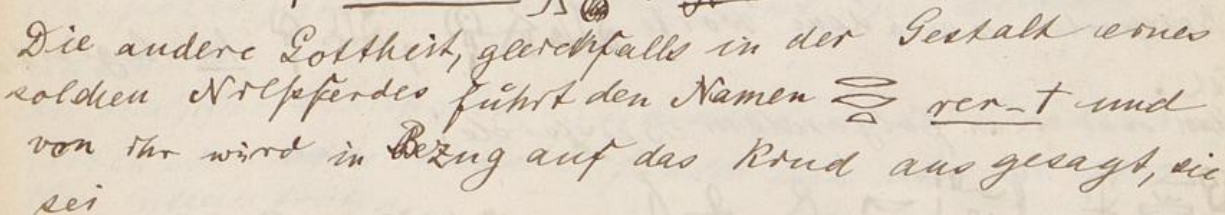 Die andere Gottheit, gleichfalls in der Gestalt eines
solchen Nilpferdes führt den Namen rer-t und
von ihr wird in Bezug auf das Kind aus gesagt, sie
sei